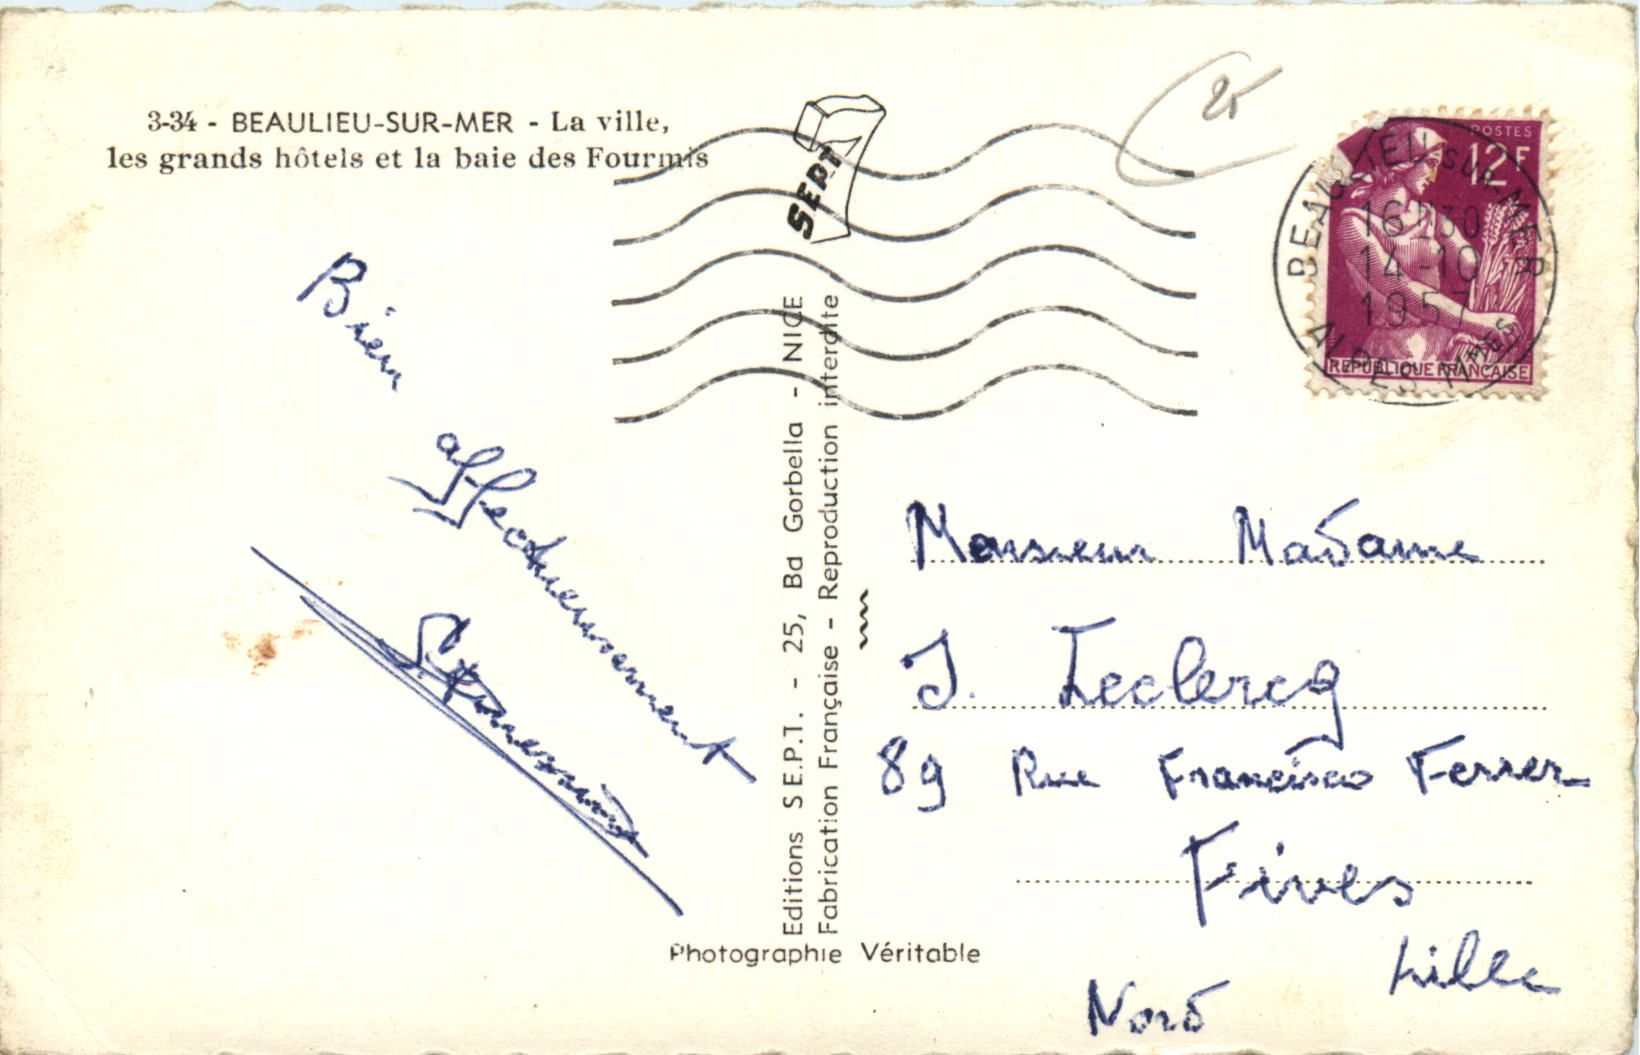 3-34 - BEAULIEU-SUR-MER - La ville,
les grands hôtels et la baie des Fourmis
SEPT
25
POSTES
12F
BEAULIEU-SUR-MER
16H30
14-10
1957
ALPES MMES
REPUBLIQUE FRANÇAISE
Bien
affectueusement
Editions S.E.P.T. - 25, Bd Gorbella - NICE
Fabrication Française - Reproduction interdite
Photographie Véritable
Monsieur Madame
J. Leclercq
89 Rue Francisco Ferrer
Fives
Lille
Nord